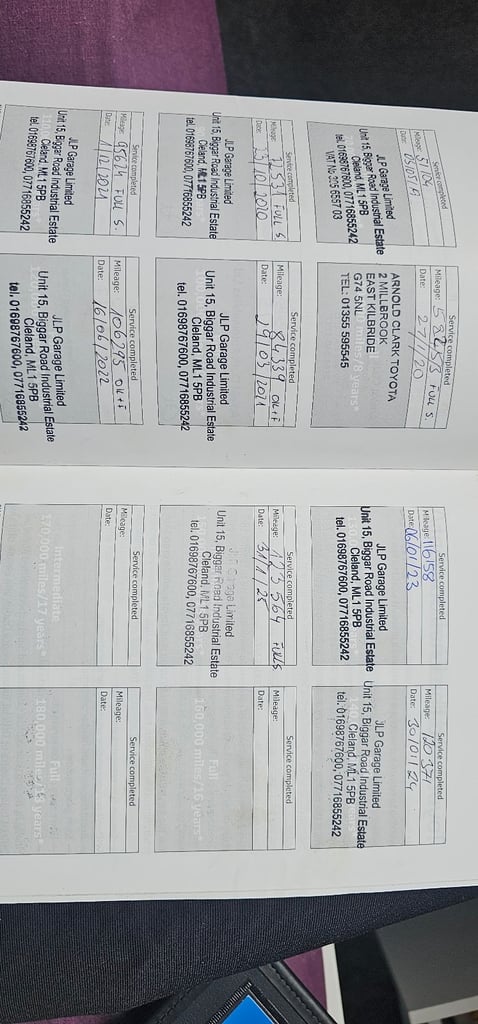 Service completed
Mileage: 51704
JLP Garage Limited
Unit 15, Biggar Road Industrial Estate
Cleland, ML1 5PB
tel. 01698767600, 07716855242
VAT No 305 6557 03
Service completed
Mileage: 58253 FULL S.
Date: 27/1/20
ARNOLD CLARK TOYOTA
2 MILLBROOK
EAST KILBRIDE
G74 5NL miles/8 years*
TEL: 01355 595545
Service completed
Mileage: FULL S
Date: 23/10/2020
JLP Garage Limited
Unit 15, Biggar Road Industrial Estate
Cleland, ML1 5PB
tel. 01698767600, 07716855242
Service completed
Mileage: 84339 OIL+F
Date: 29/03/2021
JLP Garage Limited
Unit 15, Biggar Road Industrial Estate
Cleland, ML1 5PB
tel. 01698767600, 07716855242
Service completed
Mileage: 95674 FULL S.
Date: 1/12/2021
JLP Garage Limited
Unit 15, Biggar Road Industrial Estate
Cleland, ML1 5PB
tel. 01698767600, 07716855242
Service completed
Mileage: 106795 OIL+F
Date: 16/06/2022
JLP Garage Limited
Unit 15, Biggar Road Industrial Estate
Cleland, ML1 5PB
tel. 01698767600, 07716855242
Service completed
Mileage: 116158
Date: 06/01/23
JLP Garage Limited
Unit 15, Biggar Road Industrial Estate
Cleland, ML1 5PB
tel. 01698767600, 07716855242
Service completed
Mileage: 120371
Date: 30/01/24
JLP Garage Limited
Unit 15, Biggar Road Industrial Estate
Cleland, ML1 5PB
tel. 01698767600, 07716855242
Service completed
Mileage: 125564 FULL S
Date: 3/1/25
JLP Garage Limited
Unit 15, Biggar Road Industrial Estate
Cleland, ML1 5PB
tel. 01698767600, 07716855242
Service completed
Mileage:
Date:
Full
160,000 miles/16 years*
Service completed
Mileage:
Date:
Intermediate
170,000 miles/17 years*
Service completed
Mileage:
Date:
Full
180,000 miles/18 years*